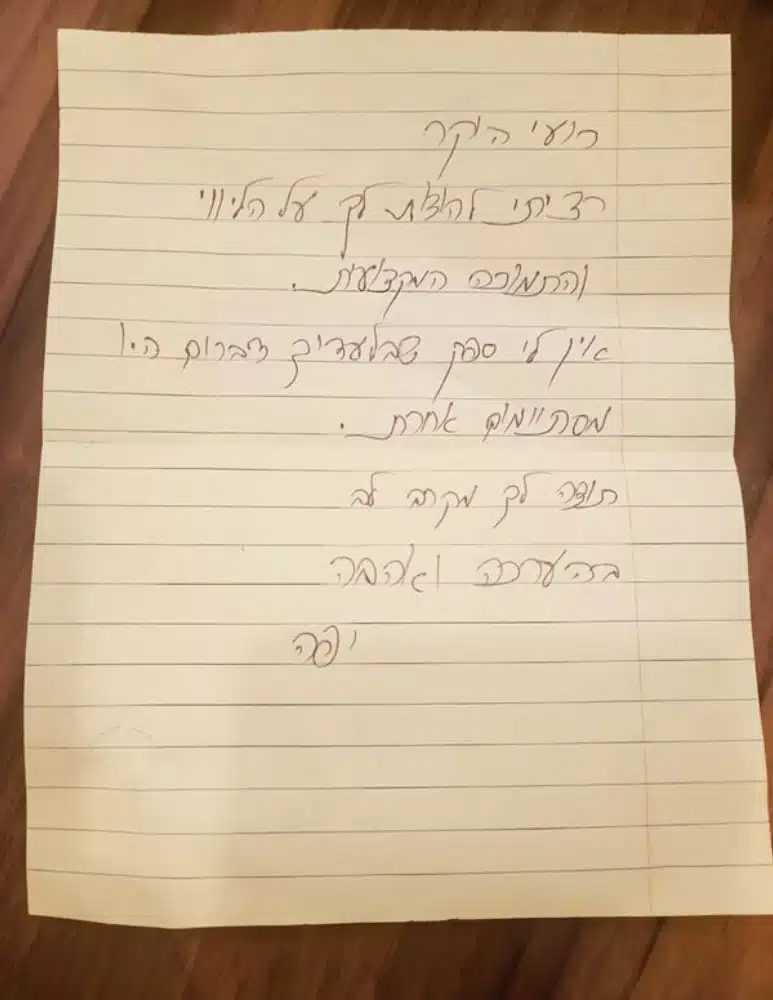 רועי היקר
רציתי להודות לך על הליווי
והתמיכה המקצועית.
אין לי ספק שבלעדיך דברים היו
מסתיימים אחרת.
תודה לך מקרב לב
בהערכה ואהבה
יפה